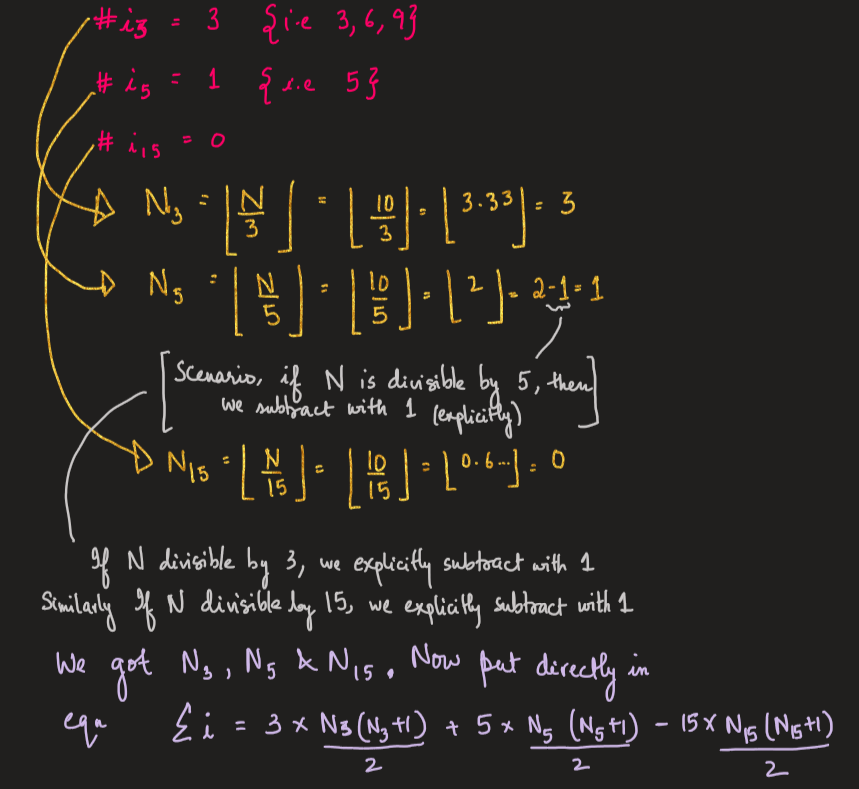 #i3 = 3 {i.e 3,6,9}
# i5 = 1 {i.e 5}
# i15 = 0
N3 = ⌊N/3⌋ = ⌊10/3⌋ = ⌊3.33⌋ = 3
N5 = ⌊N/5⌋ = ⌊10/5⌋ = ⌊2⌋ = 2-1=1
[Scenario, if N is divisible by 5, then
we subtract with 1 (explicitly)]
N15 = ⌊N/15⌋ = ⌊10/15⌋ = ⌊0.6...⌋ = 0
If N divisible by 3, we explicitly subtract with 1
Similarly If N divisible by 15, we explicitly subtract with 1
We got N3, N5 & N15. Now put directly in
eqn Σi = 3 × N3(N3+1)/2 + 5 × N5(N5+1)/2 − 15 × N15(N15+1)/2